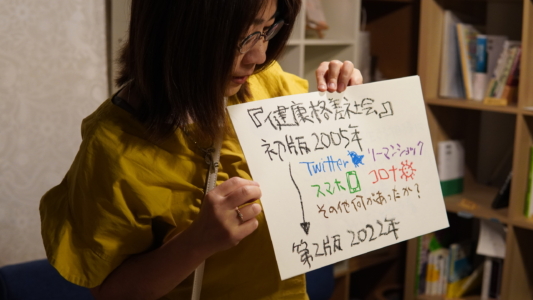 『健康格差社会』
初版 2005年
Twitter リーマンショック
スマホ コロナ
その他何があったか?
第2版 2022年